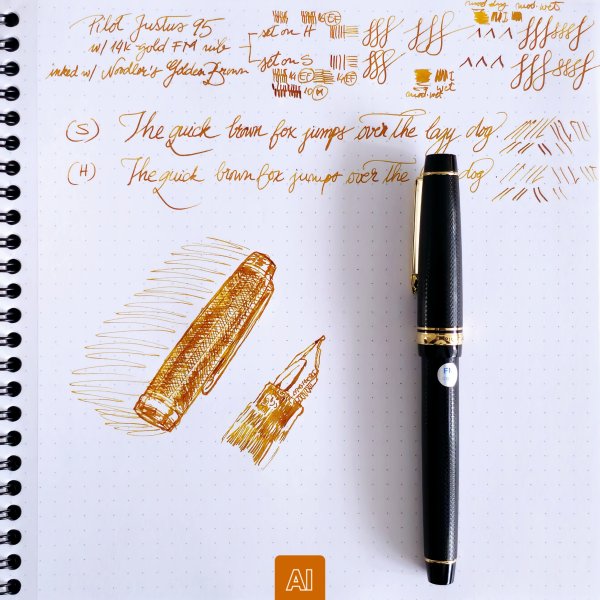 Pilot Justus 95
w/ 14k gold FM nib
inked w/ Noodler's Golden Brown
set on H
set on S
mod. dry mod. wet
wet
mod. wet
(S) The quick brown fox jumps over the lazy dog.
(H) The quick brown fox jumps over the dog.
FM
AI